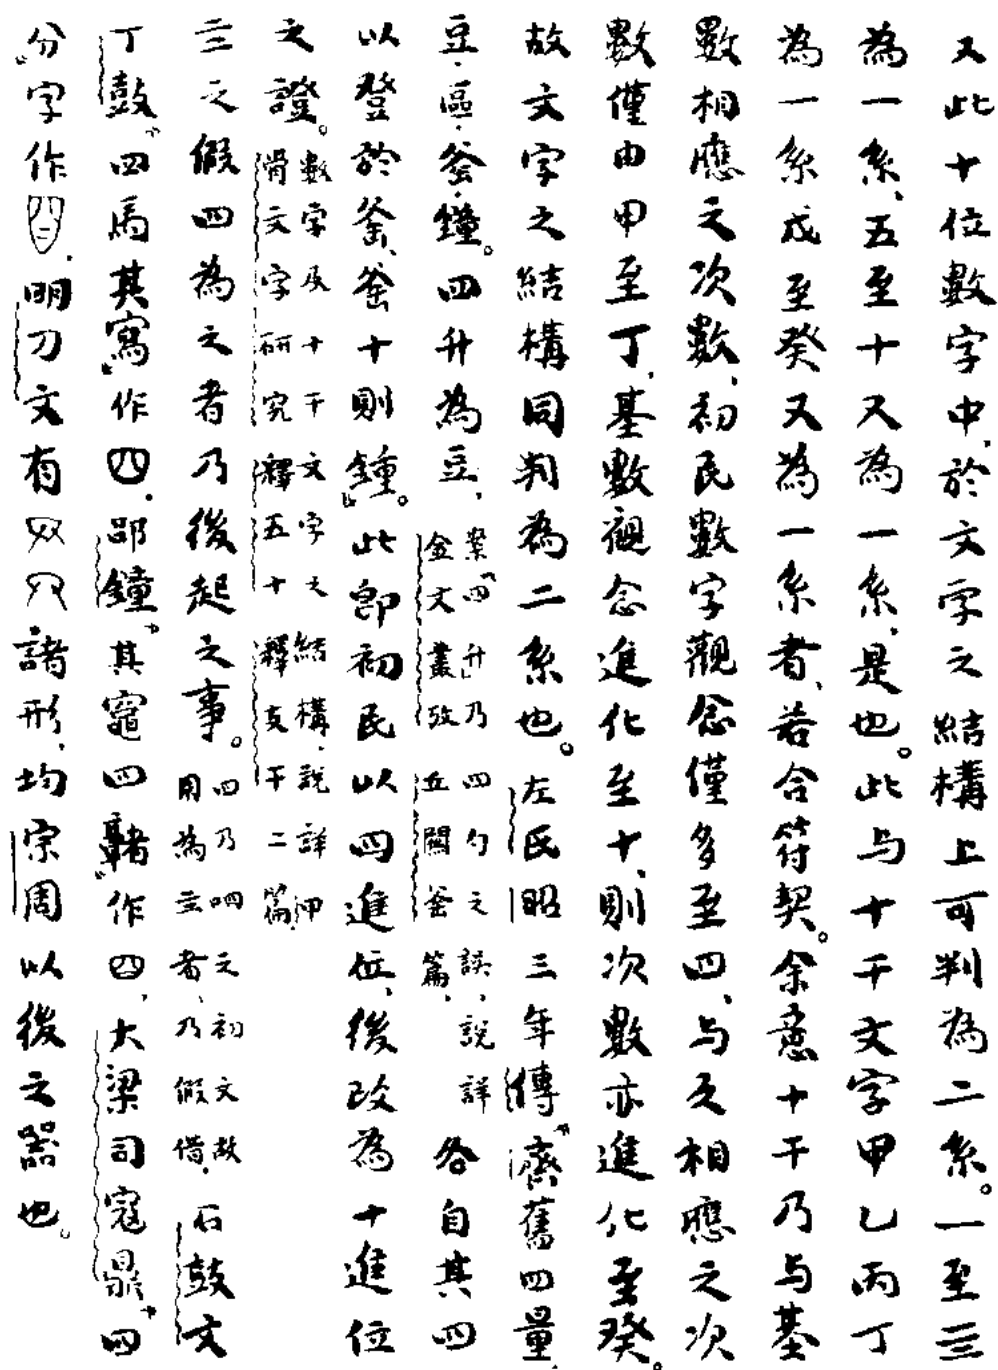 又此十位數字中，於文字之結構上可判為二系。一至亖
為一系，五至十又為一系，是也。此与十干文字甲乙丙丁
為一系戊至癸又為一系者，若合符契。余意十干乃与基
數相應之次數，初民數字觀念僅多至四，与之相應之次
數僅由甲至丁，基數觀念進化至十，則次數亦進化至癸。
故文字之結構同判為二系也。左氏昭三年傳『濟舊四量，
豆·區·釜·鐘。四升為豆，
案『四升』乃四勺之誤，說詳
金文叢攷丘關釜篇，
各自其四
以登於釜，釜十則鍾』。此即初民以四進位，後改為十進位
之證。
數字及十干文字之結構，說詳甲
骨文字研究釋五十釋支干二篇，
亖之假四為之者乃後起之事。
四乃呬之初文故
用為亖者，乃假借，
石鼓文
丁鼓『四馬其寫』作四，郘鐘『其竈四䪦』作四，大梁司寇鼎『四
分』字作，明刀文有諸形，均宗周以後之器也。